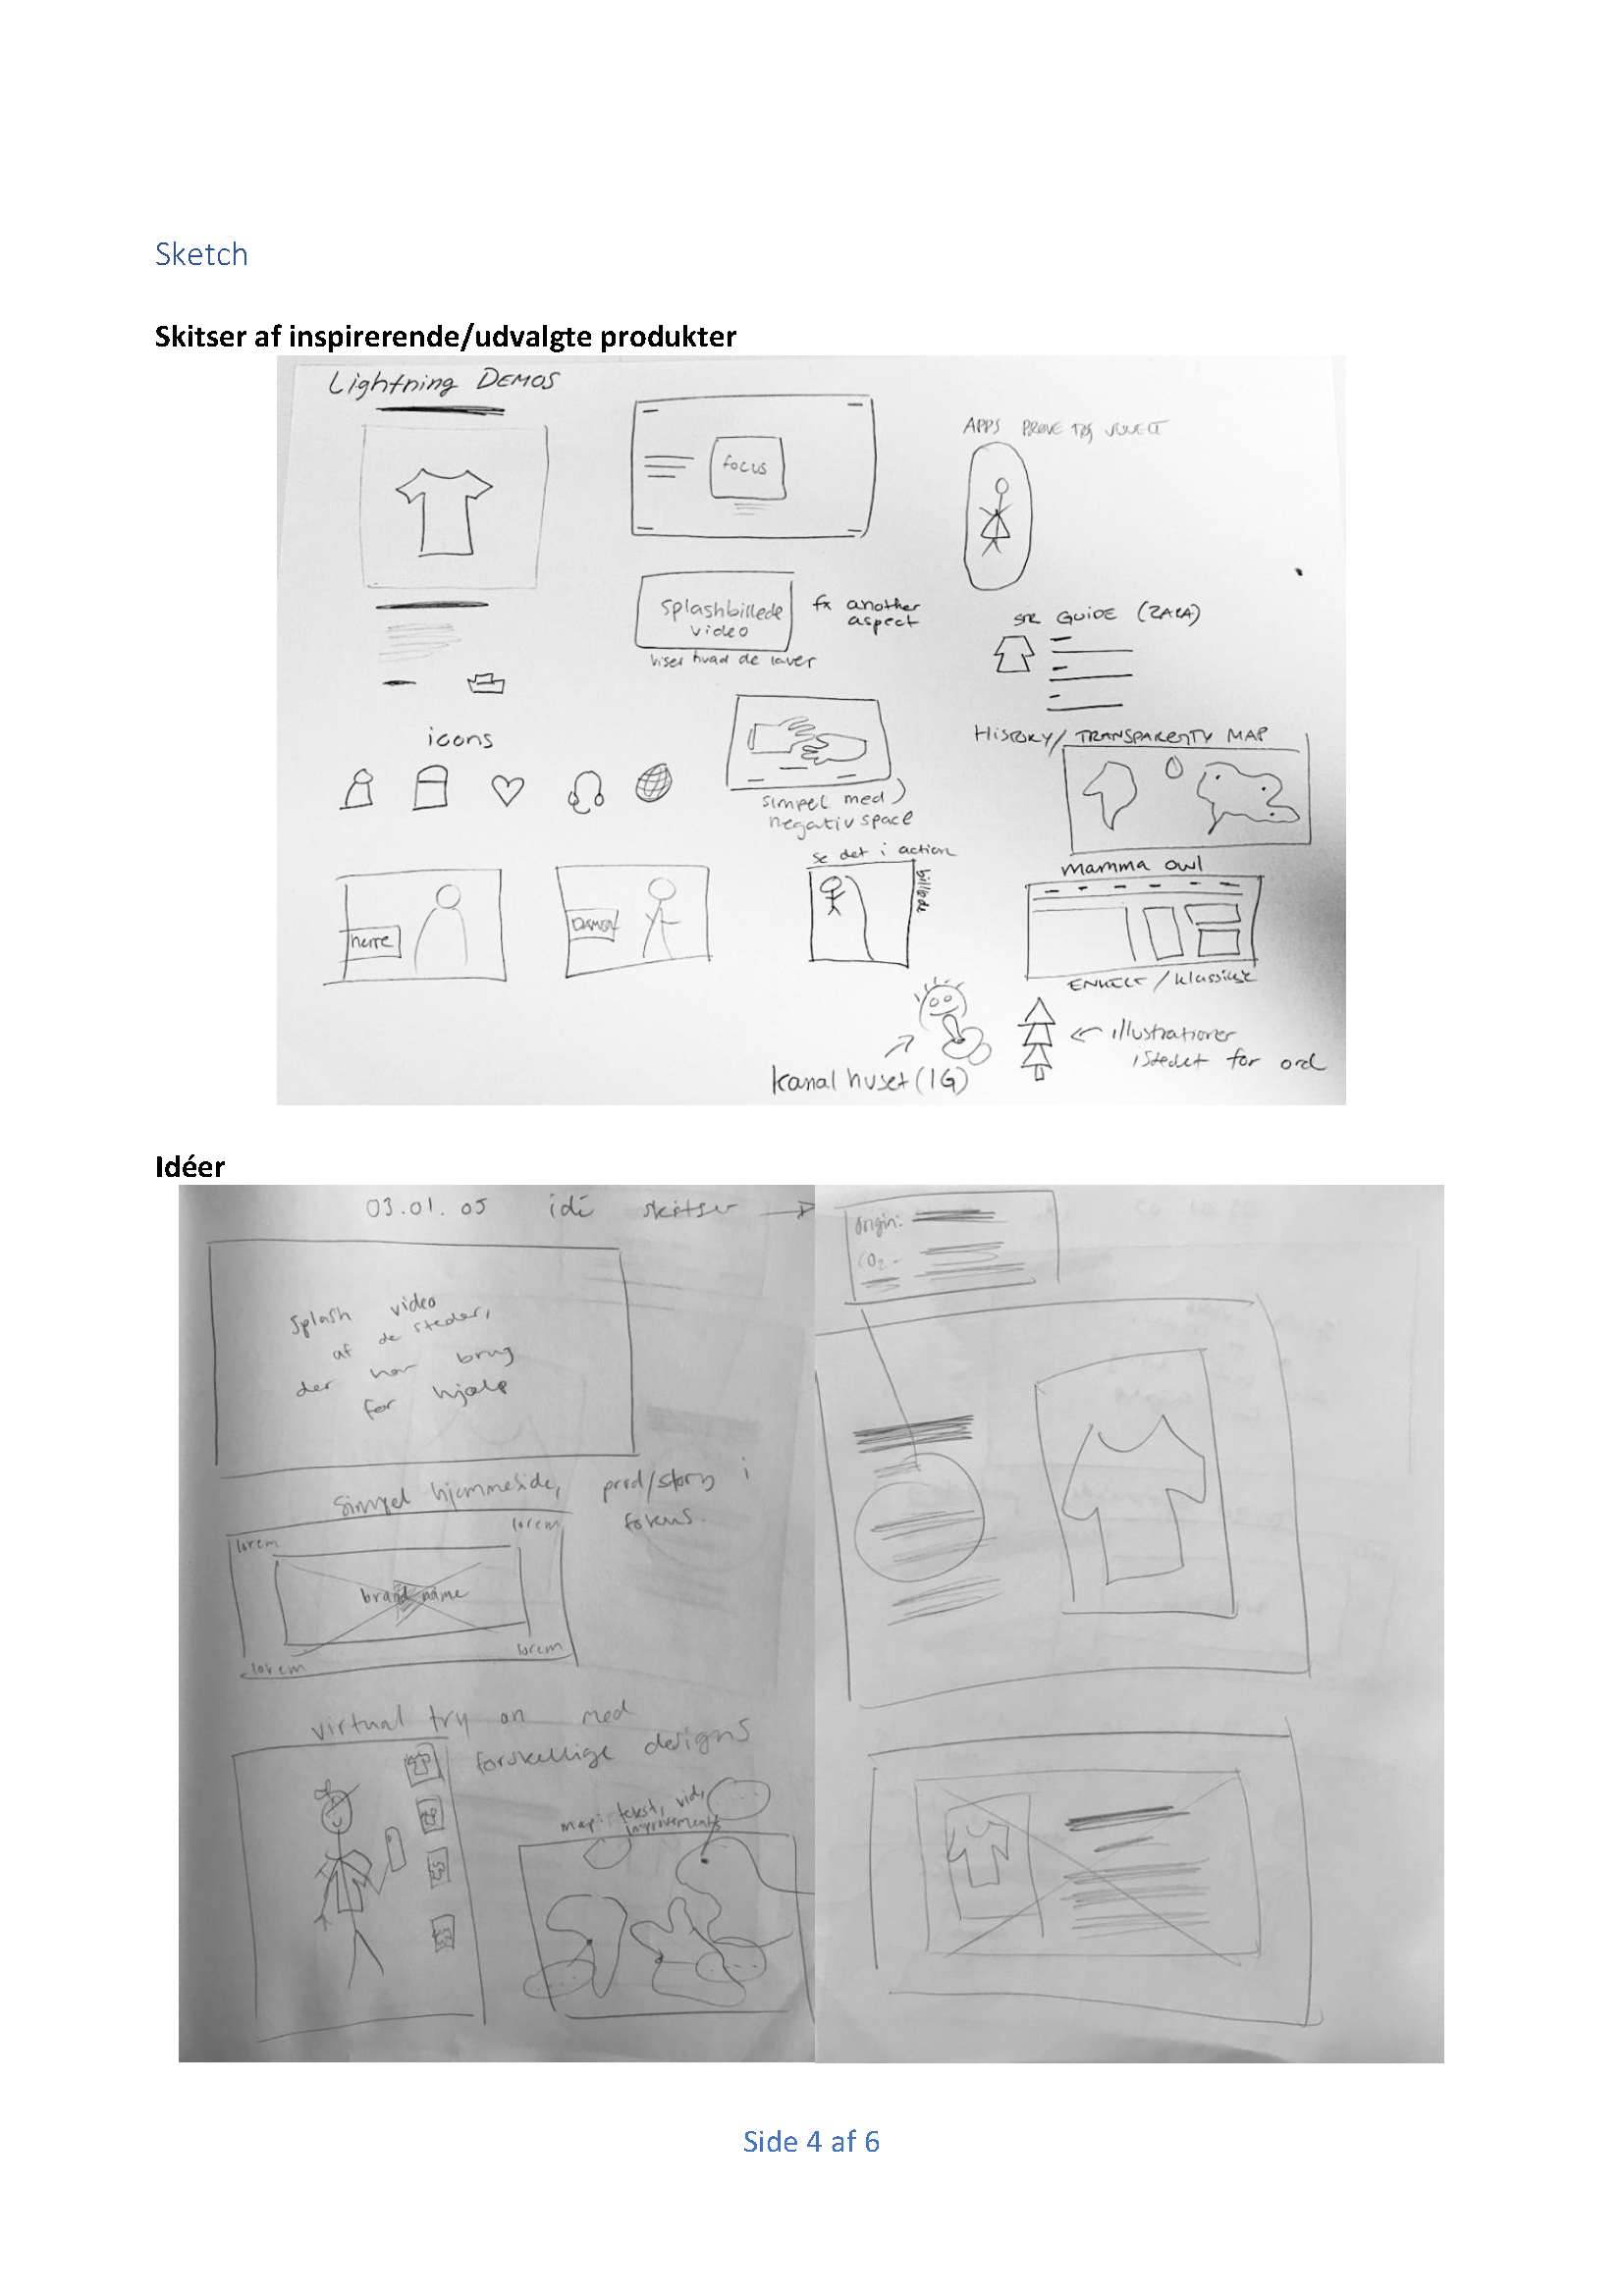 Sketch
Skitser af inspirerende/udvalgte produkter
Lightning DEMOS
focus
APPS PRØVE TØJ
splashbillede
video
fx another
aspect
viser hvad de laver
STR GUIDE (ZARA)
icons
simpel med
negativ space
HISTORY/ TRANSPARENTY MAP
herre
DAMER
se det i action
billede
mamma owl
ENKELT / klassisk
kanal huset (IG)
illustrationer
istedet for ord
Idéer
03.01.05 idé skitser
splash video
af de steder,
der har brug
for hjælp
simpel hjemmeside, prod/story i
fokus.
lorem
lorem
brand name
lorem
lorem
virtual try on med
forskellige designs
map: tekst, vid,
improvements
Origin:
CO2-
Side 4 af 6